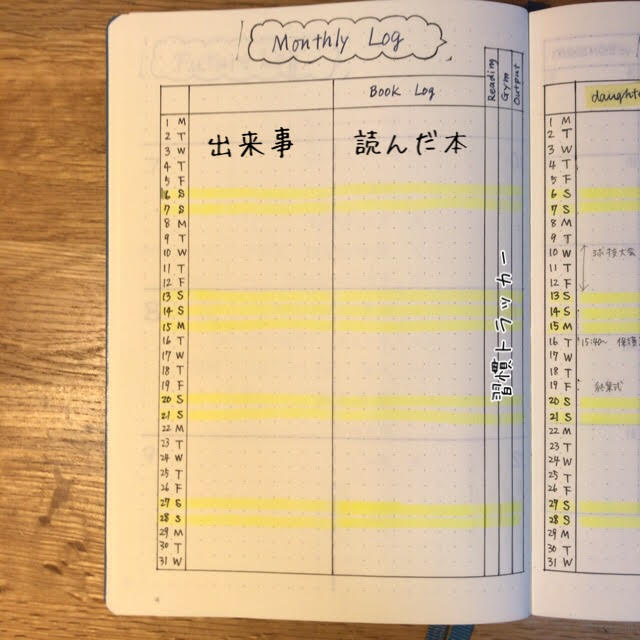 Monthly Log
Book Log
Reading
Gym
Output
出来事
読んだ本
習慣トラッカー
1 M
2 T
3 W
4 T
5 F
6 S
7 S
8 M
9 T
10 W
11 T
12 F
13 S
14 S
15 M
16 T
17 W
18 T
19 F
20 S
21 S
22 M
23 T
24 W
25 T
26 F
27 S
28 S
29 M
30 T
31 W
daughte
1 M
2 T
3 W
4 T
5 F
6 S
7 S
8 M
9 T
10 W
11 T
12 F
13 S
14 S
15 M
16 T 15:40~
17 W
18 T
19 F 終業式
20 S
21 S
22 M
23 T
24 W
25 T
26 F
27 S
28 S
29 M
30 T
31 W